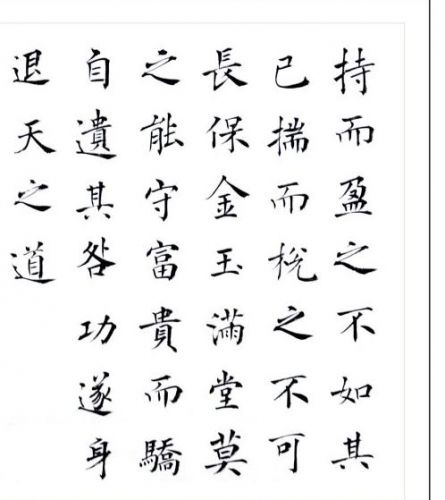 持而盈之不如其
已揣而梲之不可
長保金玉滿堂莫
之能守富貴而驕
自遺其咎功遂身
退天之道